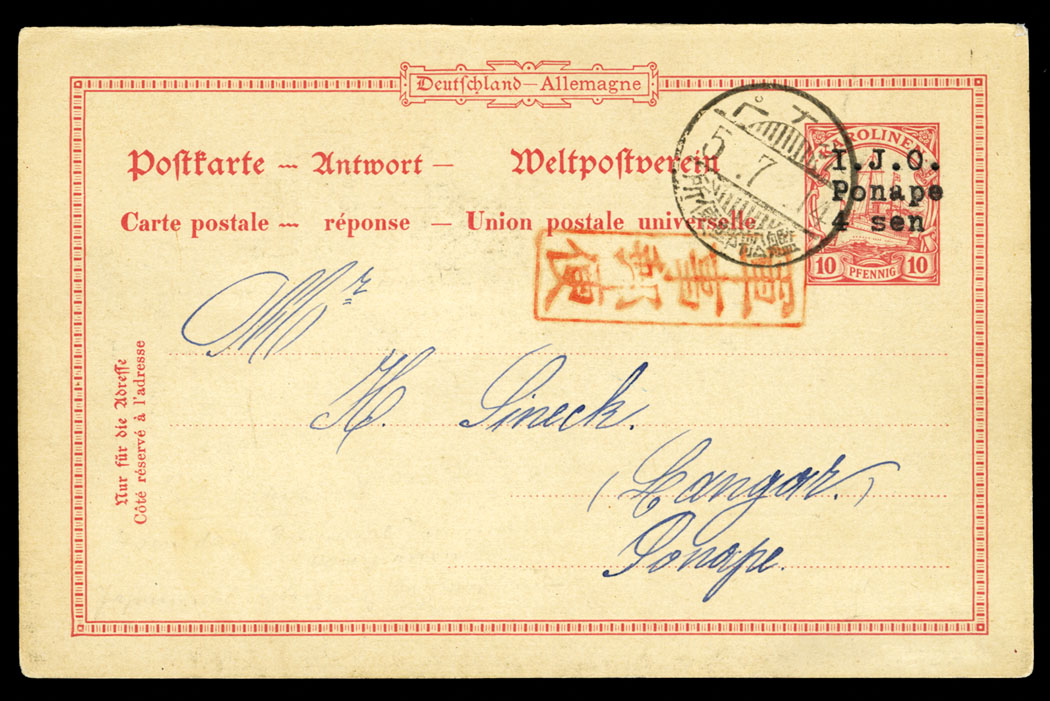 Deutschland—Allemagne
Postkarte — Antwort — Weltpostverein
Carte postale — réponse — Union postale universelle
KAROLINEN
I.J.O.
Ponape
4 sen
10 PFENNIG 10
5.7
軍事郵便
Mr
H. Sineck.
(Langar.)
Ponape.
Nur für die Adresse
Côté réservé à l'adresse